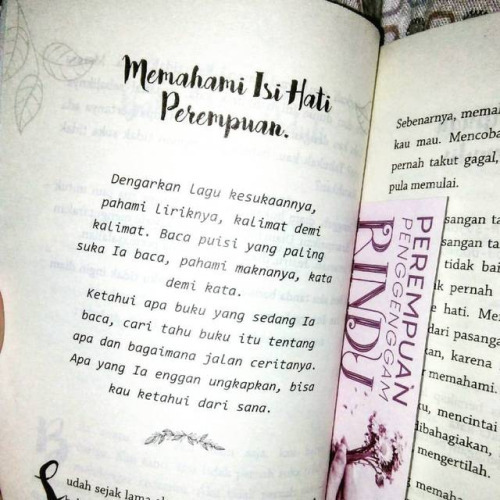 Memahami Isi Hati
Perempuan.
Dengarkan lagu kesukaannya,
pahami liriknya, kalimat demi
kalimat. Baca puisi yang paling
suka Ia baca, pahami maknanya, kata
demi kata.
Ketahui apa buku yang sedang Ia
baca, cari tahu buku itu tentang
apa dan bagaimana jalan ceritanya.
Apa yang Ia enggan ungkapkan, bisa
kau ketahui dari sana.
Sudah sejak lama
Sebenarnya, memah
kau mau. Mencoba
pernah takut gagal,
pula memulai.
PEREMPUAN
PENGGENGGAM
RINDU
sangan ta
sangan ta
tidak bai
k pernah
e hati. Me
dari pasanga
an, karena
memahami.
u, mencintai
dibahagiakan,
mengertilah.
memaha